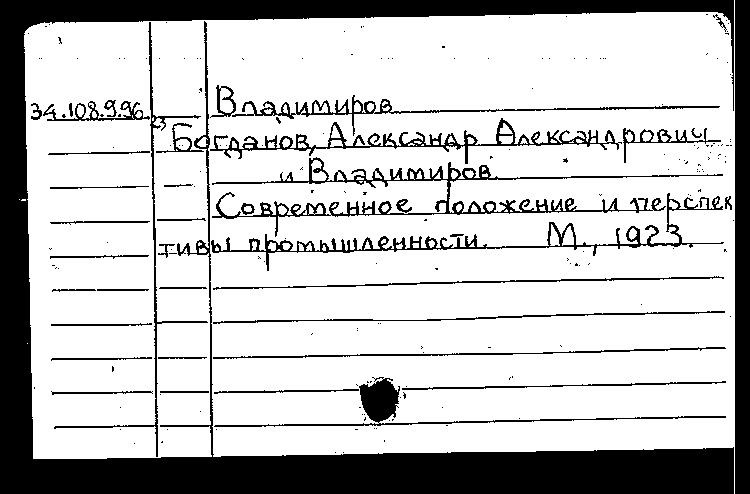 34.108.9.96. Владимиров
23 Богданов, Александр Александрович
и Владимиров.
Современное положение и перспек
тивы промышленности. М., 1923.